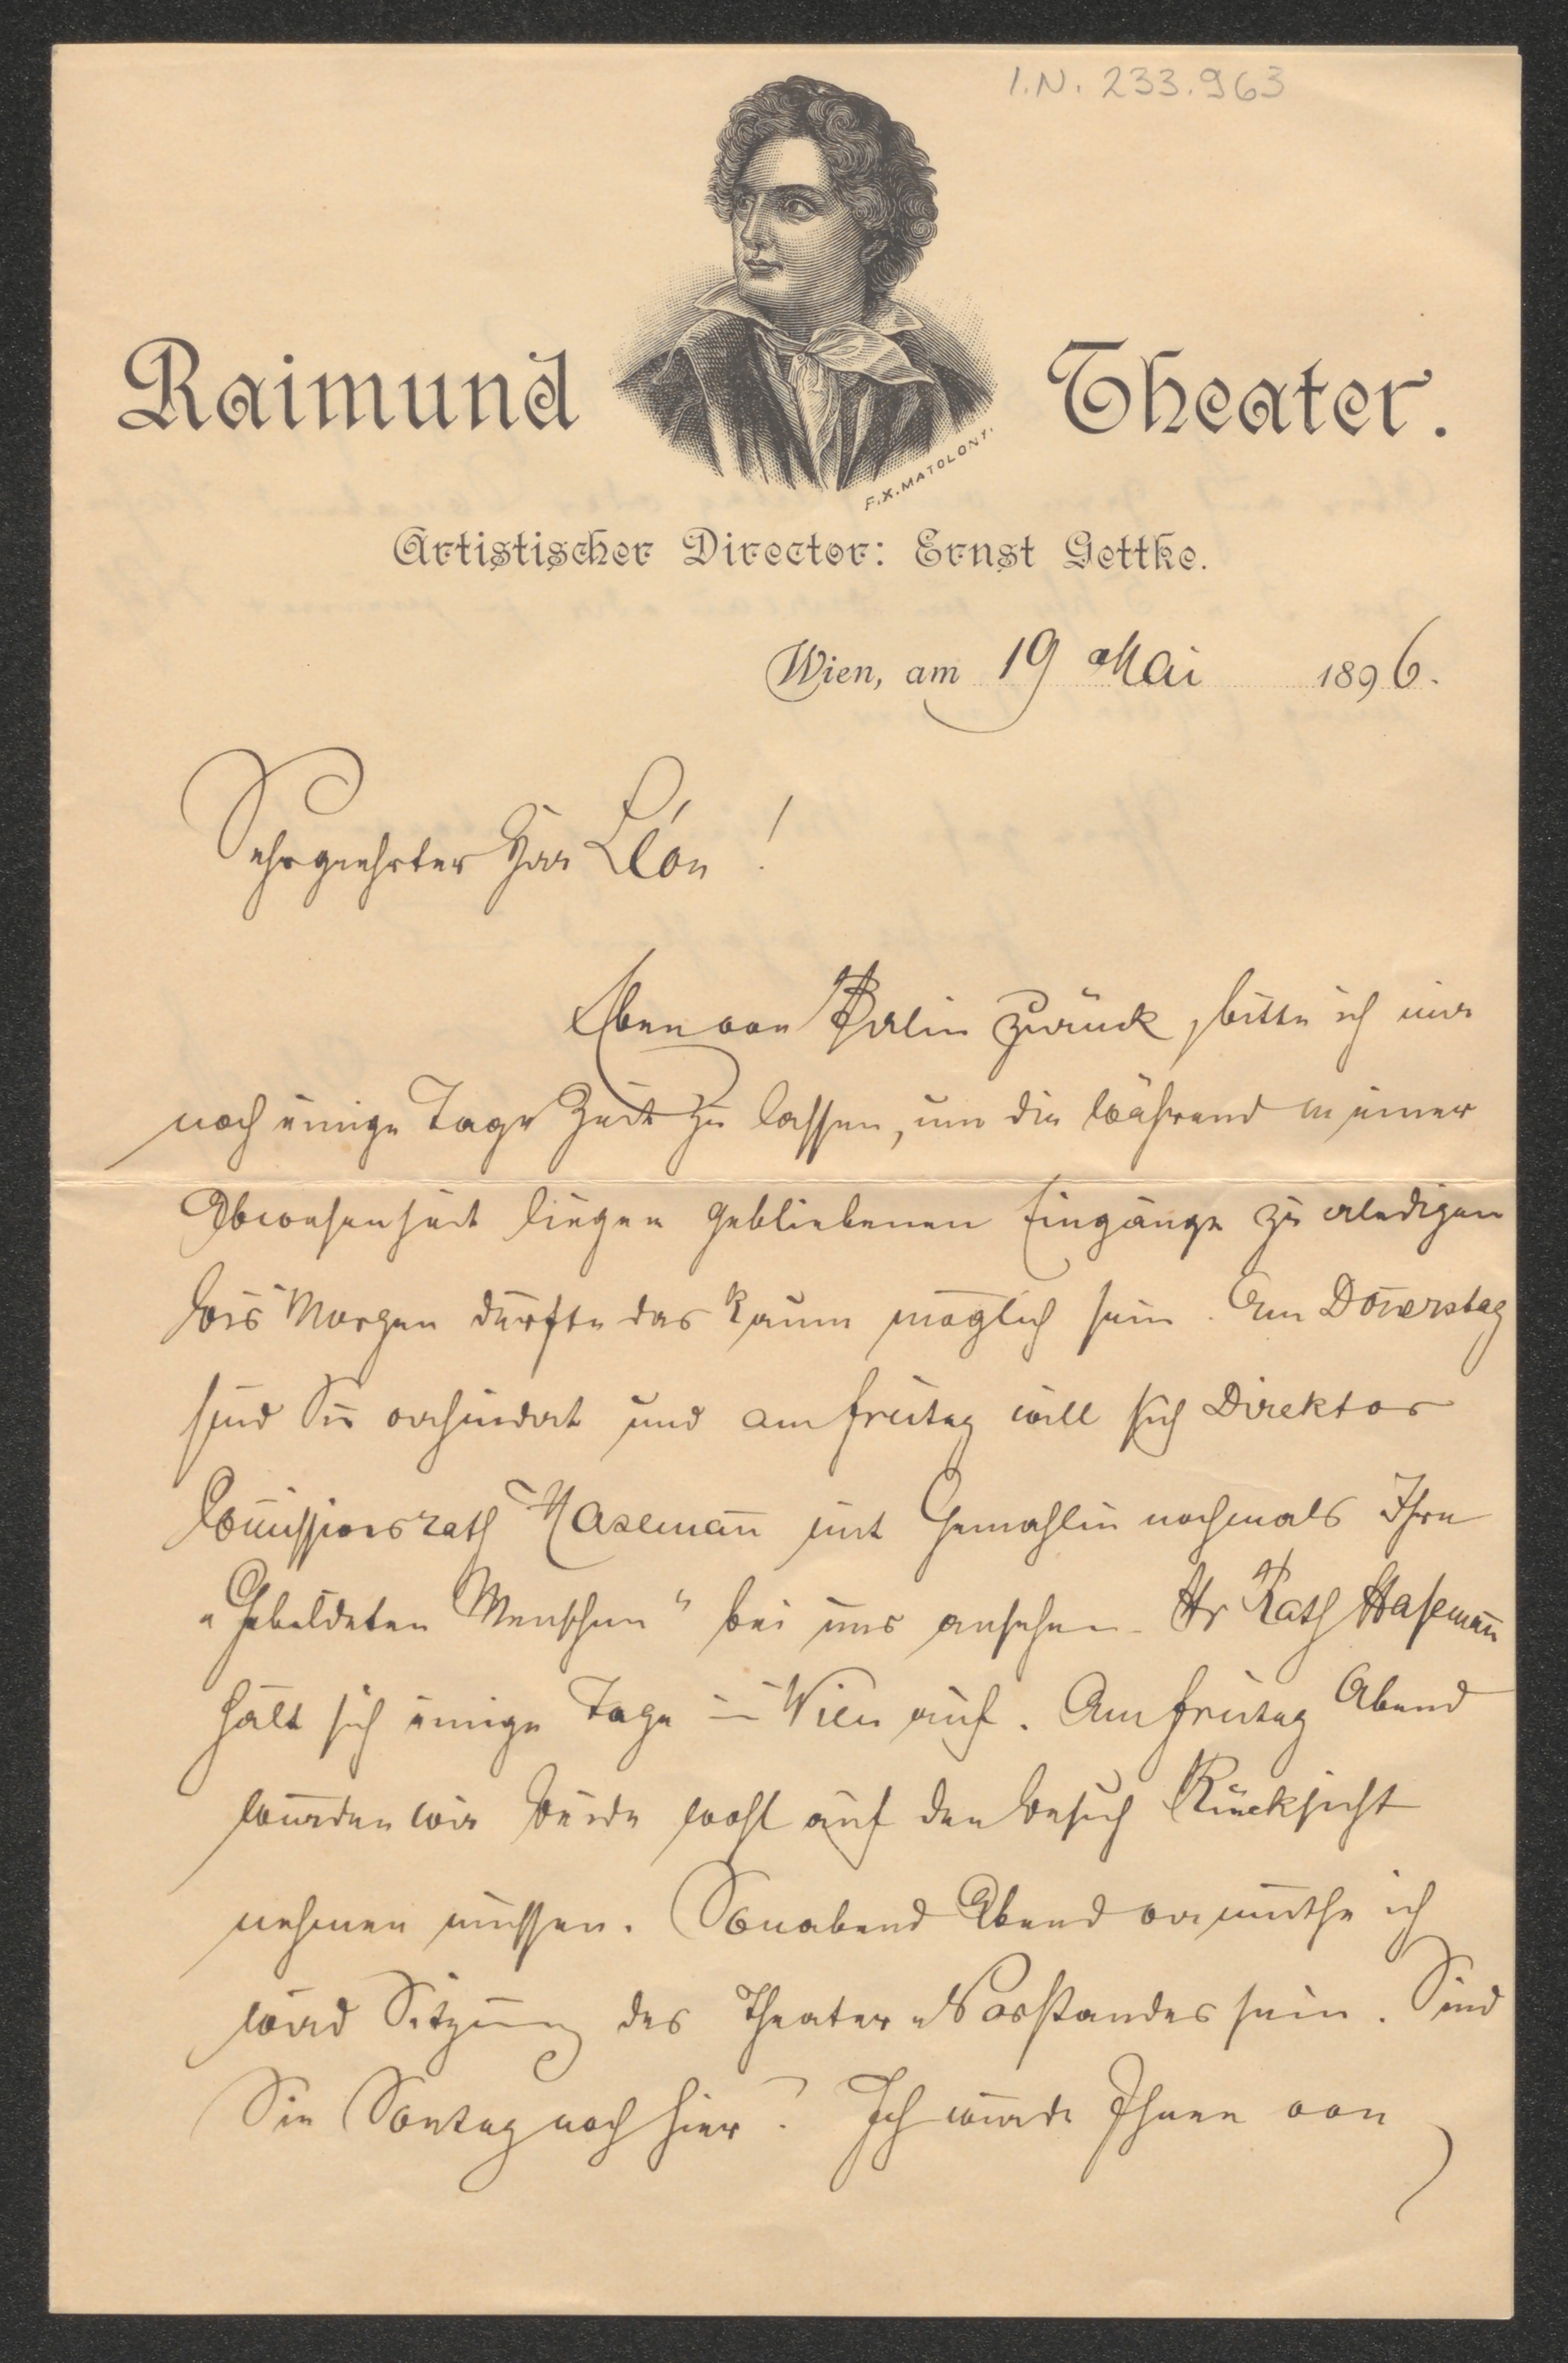 I.N. 233.963
Raimund Theater.
F.X. MATOLONY.
Artistischer Director: Ernst Gettke.
Wien, am 19 Mai 1896.
Sehrgeehrter Herr Léon!
Eben von Berlin zurück, bitte ich mir
noch einige Tage Zeit zu lassen, um die während meiner
Abwesenheit liegen gebliebenen Eingänge zu erledigen
bis Morgen dürfte das kaum möglich sein. Am Doñerstag
sind Sie verhindert und am Freitag will sich Direktor
Com̄issionsrath Haseman̄ mit Gemahlin nochmals Ihre
„Gebildeten Menschen“ bei uns ansehen. Hr Rath Haseman̄
hält sich einige Tage in Wien auf. Am Freitag Abend
würden wir beide wohl auf den Besuch Rücksicht
nehmen müssen. Son̄abend Abend vermuthe ich
wird Sitzung des Theater Vorstandes sein. Sind
Sie Son̄tag noch hier? Ich würde Ihnen von